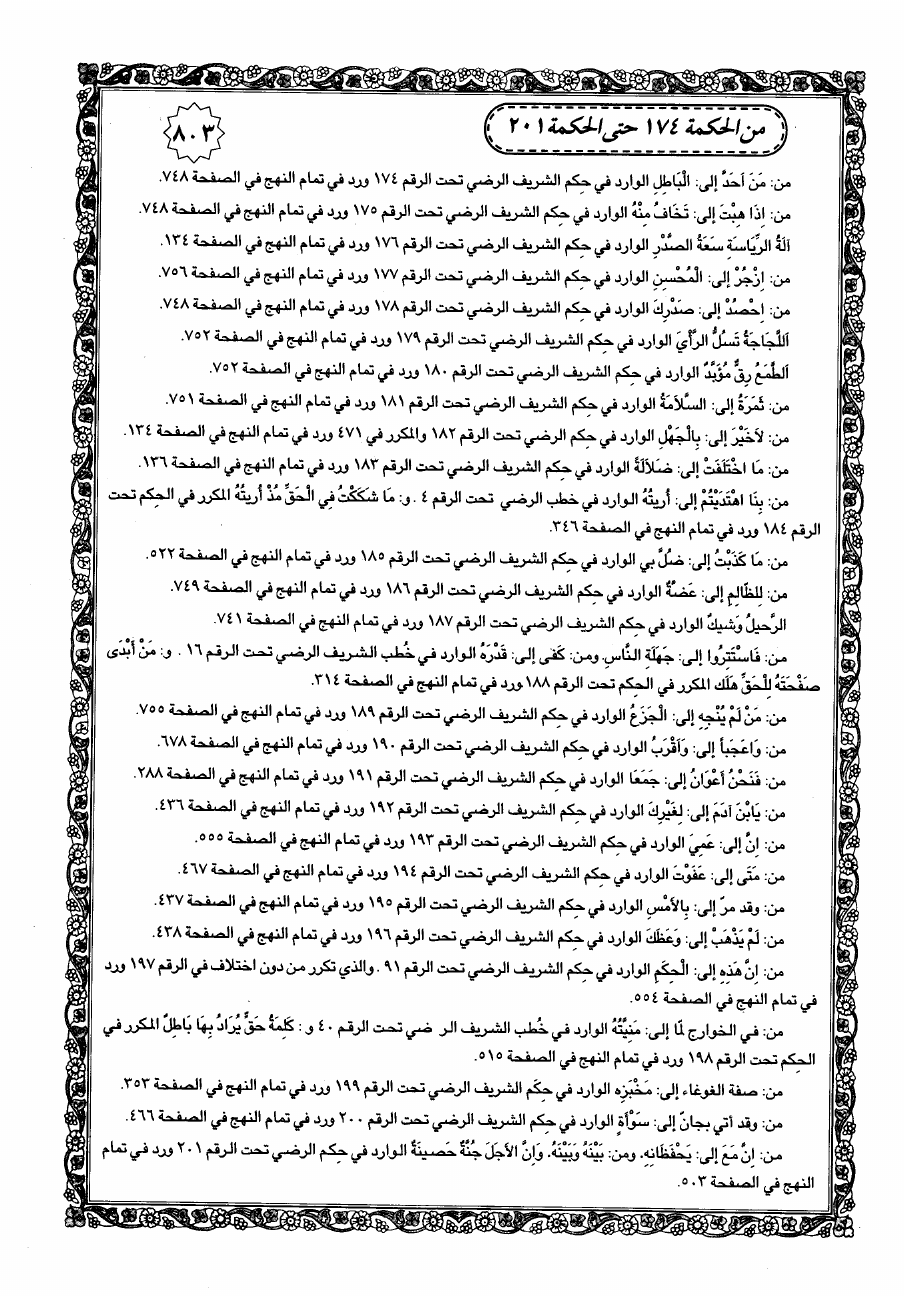 من الحكمة ١٧٤ حتى الحكمة ٢٠١
٨٠٣
من: مَنَ اَحَدَّ إلى: الْبَاطِلِ الوارد في حِكم الشريف الرضي تحت الرقم ١٧٤ ورد في تمام النهج في الصفحة ٧٤٨.
من: اِذَا هِبْتَ إلى: تَخَافُ مِنْهُ الوارد في حِكم الشريف الرضي تحت الرقم ١٧٥ ورد في تمام النهج في الصفحة ٧٤٨.
آلَةُ الرِّيَاسَةِ سِعَةُ الصَّدْرِ الوارد في حِكم الشريف الرضي تحت الرقم ١٧٦ ورد في تمام النهج في الصفحة ١٣٤.
من: اِزْجُرْ إلى: الْمُحْسِنِ الوارد في حِكم الشريف الرضي تحت الرقم ١٧٧ ورد في تمام النهج في الصفحة ٧٥٦.
من: اِحْصُدْ إلى: صَدْرِكَ الوارد في حِكم الشريف الرضي تحت الرقم ١٧٨ ورد في تمام النهج في الصفحة ٧٤٨.
اَللَّجَاجَةُ تَسُلُّ الرَّأْيَ الوارد في حِكم الشريف الرضي تحت الرقم ١٧٩ ورد في تمام النهج في الصفحة ٧٥٢.
اَلطَّمَعُ رِقٌّ مُؤَبَّدٌ الوارد في حِكم الشريف الرضي تحت الرقم ١٨٠ ورد في تمام النهج في الصفحة ٧٥٢.
من: ثَمَرَةُ إلى: السَّلاَمَةُ الوارد في حِكم الشريف الرضي تحت الرقم ١٨١ ورد في تمام النهج في الصفحة ٧٥١.
من: لاَخَيْرَ إلى: بِالْجَهْلِ الوارد في حِكم الرضي تحت الرقم ١٨٢ والمكرر في ٤٧١ ورد في تمام النهج في الصفحة ١٣٤.
من: مَا اخْتَلَفَتْ إلى: ضَلاَلَةً الوارد في حِكم الشريف الرضي تحت الرقم ١٨٣ ورد في تمام النهج في الصفحة ١٣٦.
من: بِنَا اهْتَدَيْتُمْ إلى: أُرِيتُهُ الوارد في خطب الرضي تحت الرقم ٤ . و: مَا شَكَكْتُ فِي الْحَقِّ مُذْ أُرِيتُهُ المكرر في الحِكم تحت
الرقم ١٨٤ ورد في تمام النهج في الصفحة ٣٤٦.
من: مَا كَذَبْتُ إلى: ضُلَّ بي الوارد في حِكم الشريف الرضي تحت الرقم ١٨٥ ورد في تمام النهج في الصفحة ٥٢٢.
من: لِلظَّالِمِ إلى: عَضَّةٌ الوارد في حِكم الشريف الرضي تحت الرقم ١٨٦ ورد في تمام النهج في الصفحة ٧٤٩.
الرَّحِيلُ وَشِيكٌ الوارد في حِكم الشريف الرضي تحت الرقم ١٨٧ ورد في تمام النهج في الصفحة ٧٤١.
من: فَاسْتَتِرُوا إلى: جَهَلَةِ النَّاسِ ومن: كَفى إلى: قَدْرَهُ الوارد في خُطب الشريف الرضي تحت الرقم ١٦ . و: مَنْ أَبْدَى
صَفْحَتَهُ لِلْحَقِّ هَلَكَ المكرر في الحِكم تحت الرقم ١٨٨ ورد في تمام النهج في الصفحة ٣١٤.
من: مَنْ لَمْ يُنْجِهِ إلى: الْجَزَعُ الوارد في حِكم الشريف الرضي تحت الرقم ١٨٩ ورد في تمام النهج في الصفحة ٧٥٥.
من: وَاعَجَباً إلى: وَاَقْرَبُ الوارد في حِكم الشريف الرضي تحت الرقم ١٩٠ ورد في تمام النهج في الصفحة ٦٧٨.
من: فَنَحْنُ أَعْوَانُ إلى: جَمَعَا الوارد في حِكم الشريف الرضي تحت الرقم ١٩١ ورد في تمام النهج في الصفحة ٢٨٨.
من: يَابْنَ آدَمَ إلى: لِغَيْرِكَ الوارد في حِكم الشريف الرضي تحت الرقم ١٩٢ ورد في تمام النهج في الصفحة ٤٣٦.
من: اِنَّ إلى: عَمِيَ الوارد في حِكم الشريف الرضي تحت الرقم ١٩٣ ورد في تمام النهج في الصفحة ٥٥٥.
من: مَتَى إلى: عَفَوْتَ الوارد في حِكم الشريف الرضي تحت الرقم ١٩٤ ورد في تمام النهج في الصفحة ٤٦٧.
من: وقد مرّ إلى: بِالأَمْسِ الوارد في حِكم الشريف الرضي تحت الرقم ١٩٥ ورد في تمام النهج في الصفحة ٤٣٧.
من: لَمْ يَذْهَبْ إلى: وَعَظَكَ الوارد في حِكم الشريف الرضي تحت الرقم ١٩٦ ورد في تمام النهج في الصفحة ٤٣٨.
من: اِنَّ هَذِهِ إلى: الْحِكَمِ الوارد في حِكم الشريف الرضي تحت الرقم ٩١ . والذي تكرر من دون اختلاف في الرقم ١٩٧ ورد
في تمام النهج في الصفحة ٥٥٤.
من: في الخوارج لمّا إلى: مَنِيَّتُهُ الوارد في خُطب الشريف الر ضي تحت الرقم ٤٠ و : كَلِمَةُ حَقٍّ يُرَادُ بِهَا بَاطِلٌ المكرر في
الحِكم تحت الرقم ١٩٨ ورد في تمام النهج في الصفحة ٥١٥.
من: صفة الغوغاء إلى: مَخْبَزِهِ الوارد في حِكَم الشريف الرضي تحت الرقم ١٩٩ ورد في تمام النهج في الصفحة ٣٥٣.
من: وقد أتي بجانّ إلى: سَوْأَةٍ الوارد في حِكم الشريف الرضي تحت الرقم ٢٠٠ ورد في تمام النهج في الصفحة ٤٦٦.
من: اِنَّ مَعَ إلى: يَحْفَظَانِهِ. ومن: بَيْنَهُ وَبَيْنَهُ. وَاِنَّ الأَجَلَ جُنَّةٌ حَصِينَةٌ الوارد في حِكم الرضي تحت الرقم ٢٠١ ورد في تمام
النهج في الصفحة ٥٠٣.